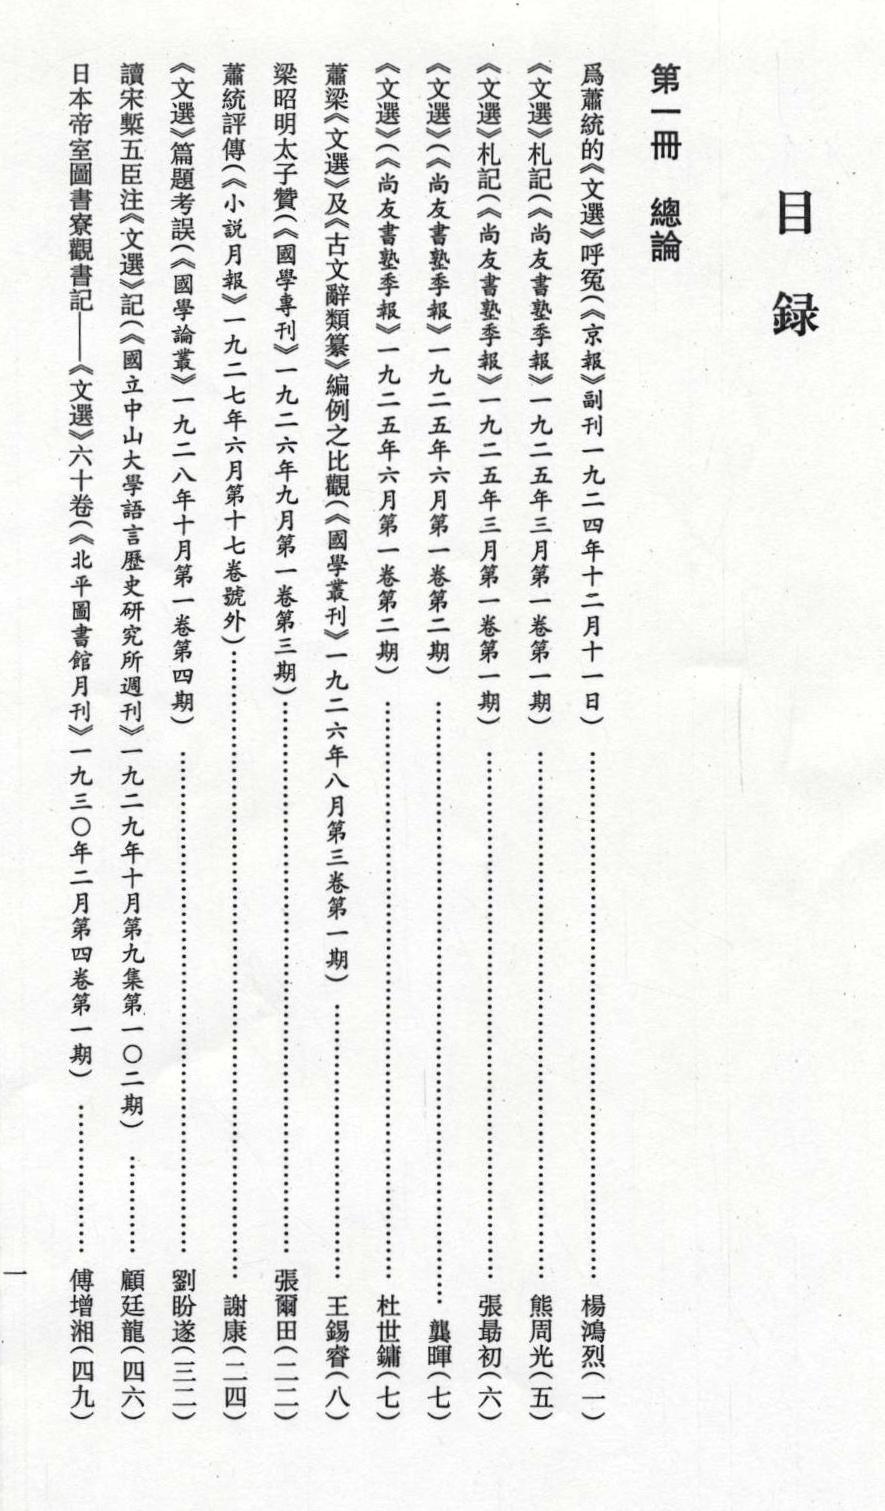 目録
第一冊　總論
爲蕭統的《文選》呼冤(《京報》副刊一九二四年十二月十一日)……………………楊鴻烈(一)
《文選》札記(《尚友書塾季報》一九二五年三月第一卷第一期)……………………熊周光(五)
《文選》札記(《尚友書塾季報》一九二五年三月第一卷第一期)……………………張勗初(六)
《文選》(《尚友書塾季報》一九二五年六月第一卷第二期)……………………龔暉(七)
《文選》(《尚友書塾季報》一九二五年六月第一卷第二期)……………………杜世鏞(七)
蕭梁《文選》及《古文辭類纂》編例之比觀(《國學叢刊》一九二六年八月第三卷第一期)……………………王錫睿(八)
梁昭明太子贊(《國學專刊》一九二六年九月第一卷第三期)……………………張爾田(二二)
蕭統評傳(《小説月報》一九二七年六月第十七卷號外)……………………謝康(二四)
《文選》篇題考誤(《國學論叢》一九二八年十月第一卷第四期)……………………劉盼遂(三二)
讀宋槧五臣注《文選》記(《國立中山大學語言歷史研究所週刊》一九二九年十月第九集第一〇二期)…………顧廷龍(四六)
日本帝室圖書寮觀書記——《文選》六十卷(《北平圖書館月刊》一九三〇年二月第四卷第一期)……………傅增湘(四九)
一